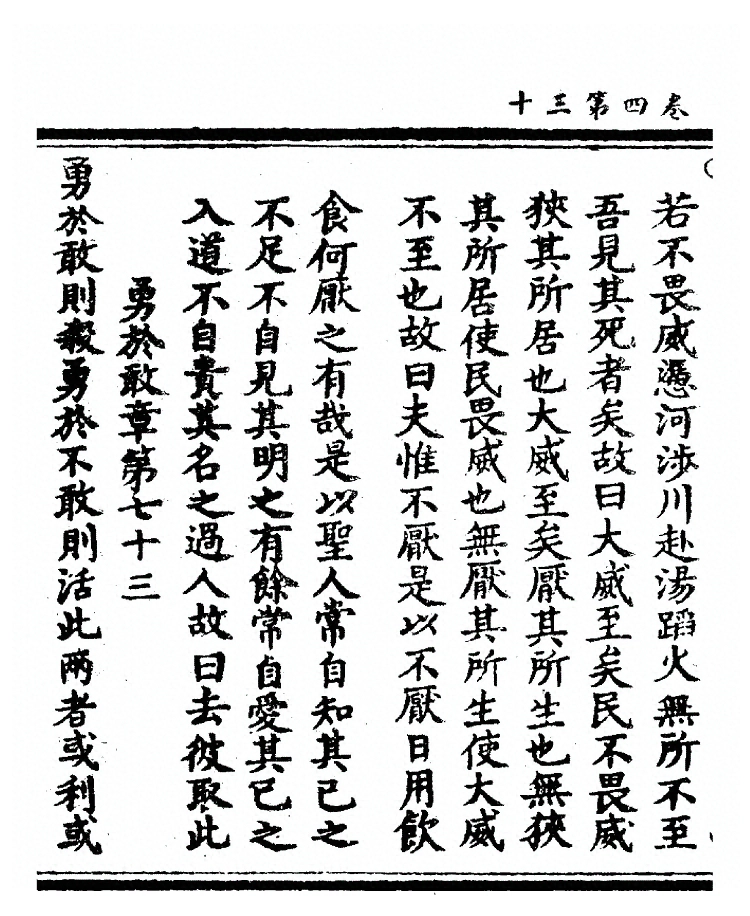 卷四第三十
若不畏威慿河涉川赴湯蹈火無所不至
吾見其死者矣故曰大威至矣民不畏威
狹其所居也大威至矣厭其所生也無狹
其所居使民畏威也無厭其所生使大威
不至也故曰夫惟不厭是以不厭日用飲
食何厭之有哉是以聖人常自知其已之
不足不自見其明之有餘常自愛其已之
入道不自貴其名之過人故曰去彼取此
勇於敢章第七十三
勇於敢則殺勇於不敢則活此兩者或利或